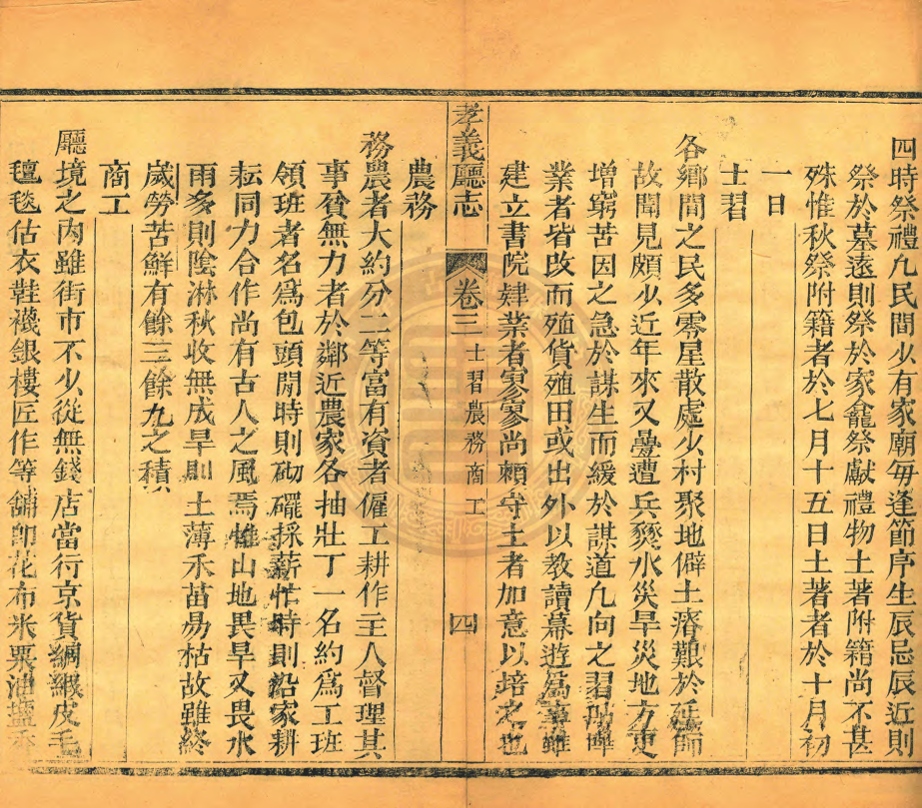 四時祭禮凢民間少有家廟每逢節序生辰忌辰近則
祭於墓遠則祭於家龕祭獻禮物土著附籍尚不甚
殊惟秋祭附籍者於七月十五日土著者於十月初
一日
士習
各鄉間之民多零星散處少村聚地僻土瘠艱於延師
故聞見頗少近年來又疊遭兵燹水災旱災地方更
增窮苦因之急於謀生而緩於謀道凢向之習
業者皆改而殖貨殖田或出外以教讀幕遊爲事雖
建立書院肄業者寥寥尚賴守土者加意以培之也
孝義廳志
卷三
士習農務商工
四
農務
務農者大約分二等富有資者僱工耕作主人督理其
事貧無力者於鄰近農家各抽壯丁一名約爲工班
領班者名爲包頭閒時則砌磖採薪忙時則沿家耕
耘同力合作尚有古人之風焉惟山地畏旱又畏水
雨多則陰淋秋收無成旱則土薄禾苗易枯故雖終
歲勞苦鮮有餘三餘九之積
商工
廳境之內雖街市不少從無錢店當行京貨綢緞皮毛
氊毯估衣鞋襪銀樓匠作等舖卽花布米粟油鹽